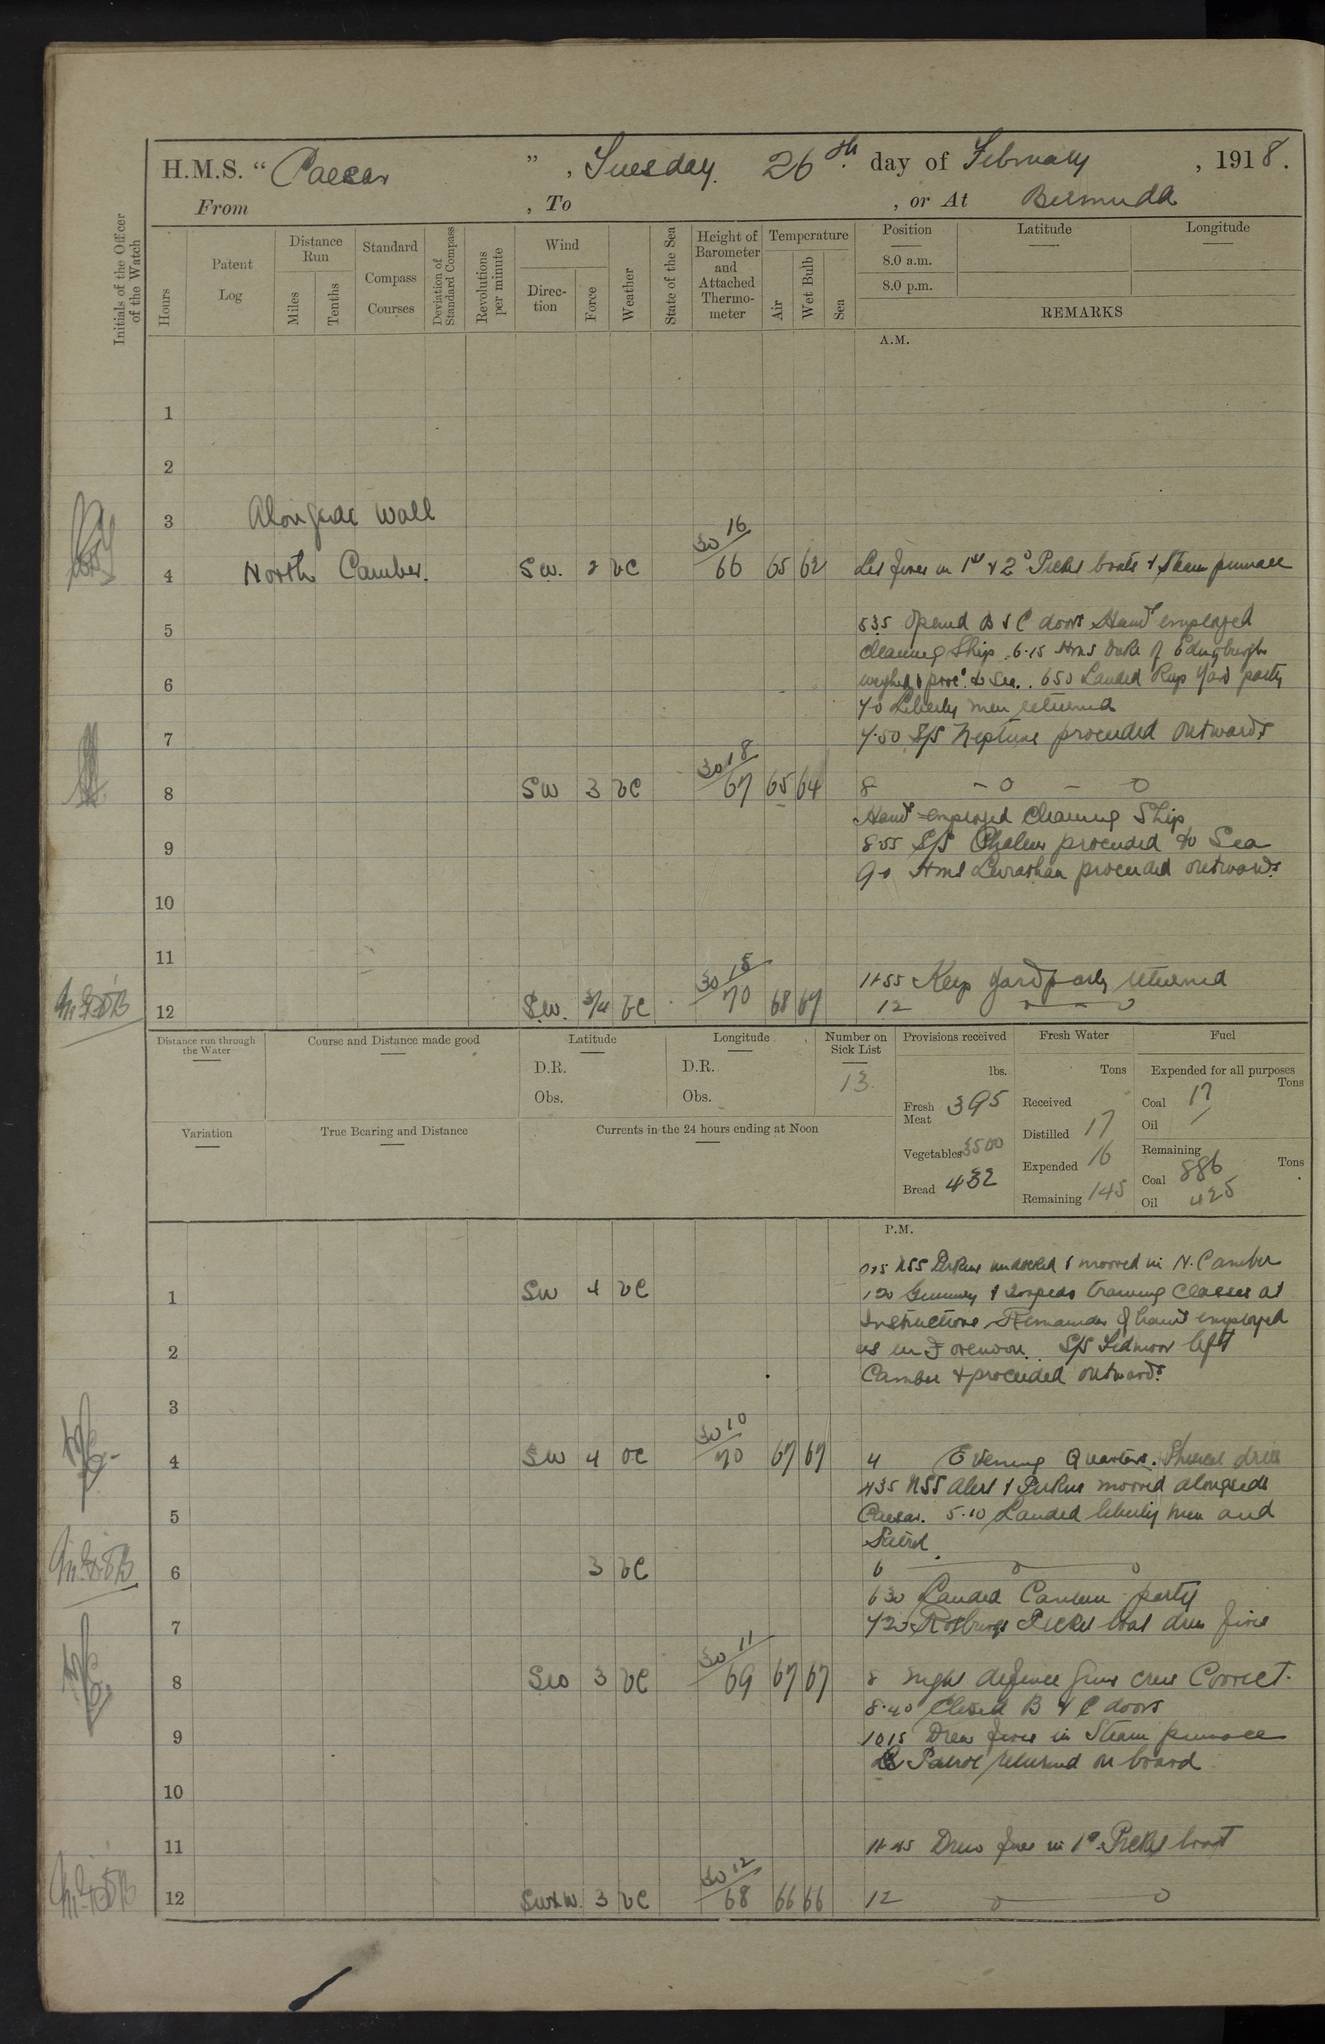 H.M.S. " Caesar ", Tuesday 26th day of February, 1918.
From , To , or At Bermuda
Initials of the Officer of the Watch
Hours
Patent Log
Distance Run
Miles
Tenths
Standard Compass Courses
Deviation of Standard Compass
Revolutions per minute
Wind
Direc-tion
Force
Weather
State of the Sea
Height of Barometer and Attached Thermo-meter
Temperature
Air
Wet Bulb
Sea
Position
8.0 a.m.
8.0 p.m.
Latitude
Longitude
REMARKS
A.M.
1
2
3 Alongside wall
4 North Camber. SW. 2 bc 30 16 66 65 62 Lit fires in 1st & 2d Picket boats & Steam pinnace
5 535 Opened B & C doors Hands employed
cleaning Ship. 6.15 HMS Duke of Edinburgh
6 weighed & proc'd to Sea. 650 Landed Keep Yard party
7.0 Liberty men returned
7 7.50 S/S Neptune proceeded outwards
8 SW 3 bc 30 18 67 65 64 8 - 0 - 0
Hands employed Cleaning Ship
9 8.55 S/S proceeded to Sea
9.0 HMS Leviathan proceeded outwards
10
11
11.55 Keep Yard party returned
12 S.W. 3/4 bc 30 18 70 68 67 12 0 - 0
Distance run through the Water
Course and Distance made good
Latitude
D.R.
Obs.
Longitude
D.R.
Obs.
Number on Sick List
13
Provisions received
lbs.
Fresh Meat 395
Vegetables 3500
Bread 432
Fresh Water
Tons
Received
Distilled 17
Expended 16
Remaining 145
Fuel
Expended for all purposes
Tons
Coal 17
Oil /
Remaining
Tons
Coal 886
Oil 425
Variation
True Bearing and Distance
Currents in the 24 hours ending at Noon
P.M.
undocked & moored in N. Camber
1 SW 4 bc 1.20 Gunnery & Torpedo training Classes at
Instructions Remainder of hands employed
2 as in Forenoon. S/S left
Camber & proceeded outwards
3
4 SW 4 bc 30 10 70 67 67 4 Evening Quarters. Physical drill
435 USS Alert & Perkins moored alongside
5 Caesar. 5.10 Landed liberty men and
Patrol.
6 3 bc 6 0 0
630 Landed Canteen party
7 Picket boat drew fires
8 SW 3 bc 30 11 69 67 67 8 Night defence Guns crews Correct.
8.40 Closed B & C doors
9 1015 Drew fires in Steam pinnace
Patrol returned on board
10
11 11.45 Drew fires in 1st Picket boat
12 SWxW. 3 bc 30 12 68 66 66 12 0 0